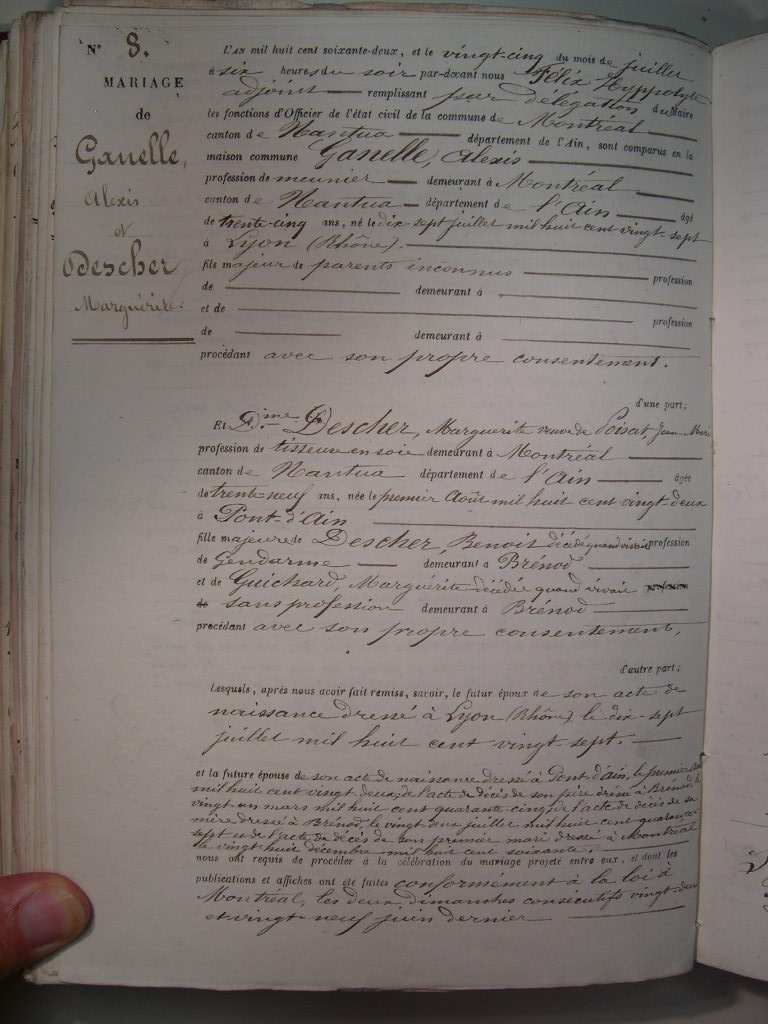 N° 8.
MARIAGE
de
Ganelle,
Alexis
et
Descher
Marguérite.
L'AN mil huit cent soixante-deux, et le vingt-cinq du mois de juillet
à six heures du soir par-devant nous Félix Hyppolyte
adjoint remplissant par délégation du Maire
les fonctions d'Officier de l'état civil de la commune de Montréal
canton de Nantua département de l'Ain, sont comparus en la
maison commune Ganelle, Alexis
profession de meunier demeurant à Montréal
canton de Nantua département de l'Ain âgé
de trente-cinq ans, né le dix sept juillet mil huit cent vingt-sept
à Lyon (Rhône).
fils majeur de parents inconnus profession
de demeurant à
et de profession
de demeurant à
procédant avec son propre consentement.
d'une part;
Et Dme Descher, Marguerite veuve de Poisat, Jean Marie
profession de tisseuse en soie demeurant à Montréal
canton de Nantua département de l'Ain âgée
de trente-neuf ans, née le premier Août mil huit cent vingt-deux
à Pont-d'Ain
fille majeure de Descher, Benoit décédé quand vivait profession
de Gendarme demeurant à Brénod
et de Guichard, Marguérite décédée quand vivait profession
de sans profession demeurant à Brénod
procédant avec son propre consentement,
d'autre part;
Lesquels, après nous avoir fait remise, savoir, le futur époux de son acte de
naissance dressé à Lyon (Rhône) le dix-sept
juillet mil huit cent vingt sept.
et la future épouse de son acte de naissance dressé à Pont d'Ain, le premier Août
mil huit cent vingt deux, de l'acte de décès de son père dressé à Brénod, le
vingt un mars mil huit cent quarante cinq, de l'acte de décès de sa
mère dressé à Brénod, le vingt deux juillet mil huit cent quarante
sept et de l'acte de décès de son premier mari dressé à Montréal
le vingt huit décembre mil huit cent soixante.
nous ont requis de procéder à la célébration du mariage projeté entre eux, et dont les
publications et affiches ont été faites conformément à la loi à
Montréal, les deux dimanches consécutifs vingt-deux
et vingt-neuf juin dernier